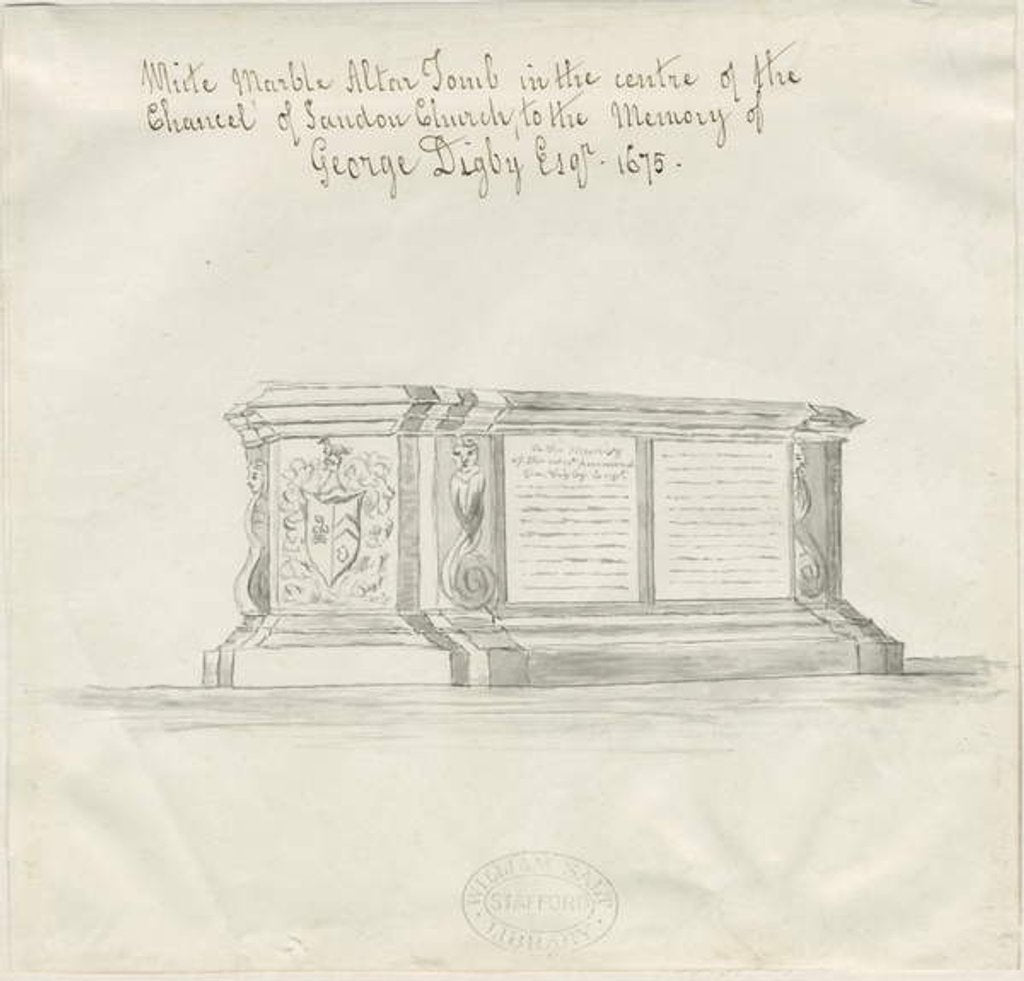 White Marble Altar Tomb in the centre of the
Chancel of Sandon Church, to the Memory of
George Digby Esqr. 1675.
To the Memory
of the
Geo. Digby Esqr.
WILLIAM SALT
STAFFORD
LIBRARY